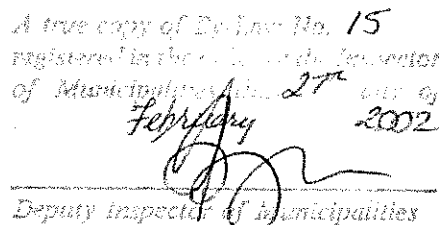 A true copy of By-Law No. 15
registered in the office of the Inspector
of Municipalities this 27th day of
February 2002
Deputy Inspector of Municipalities